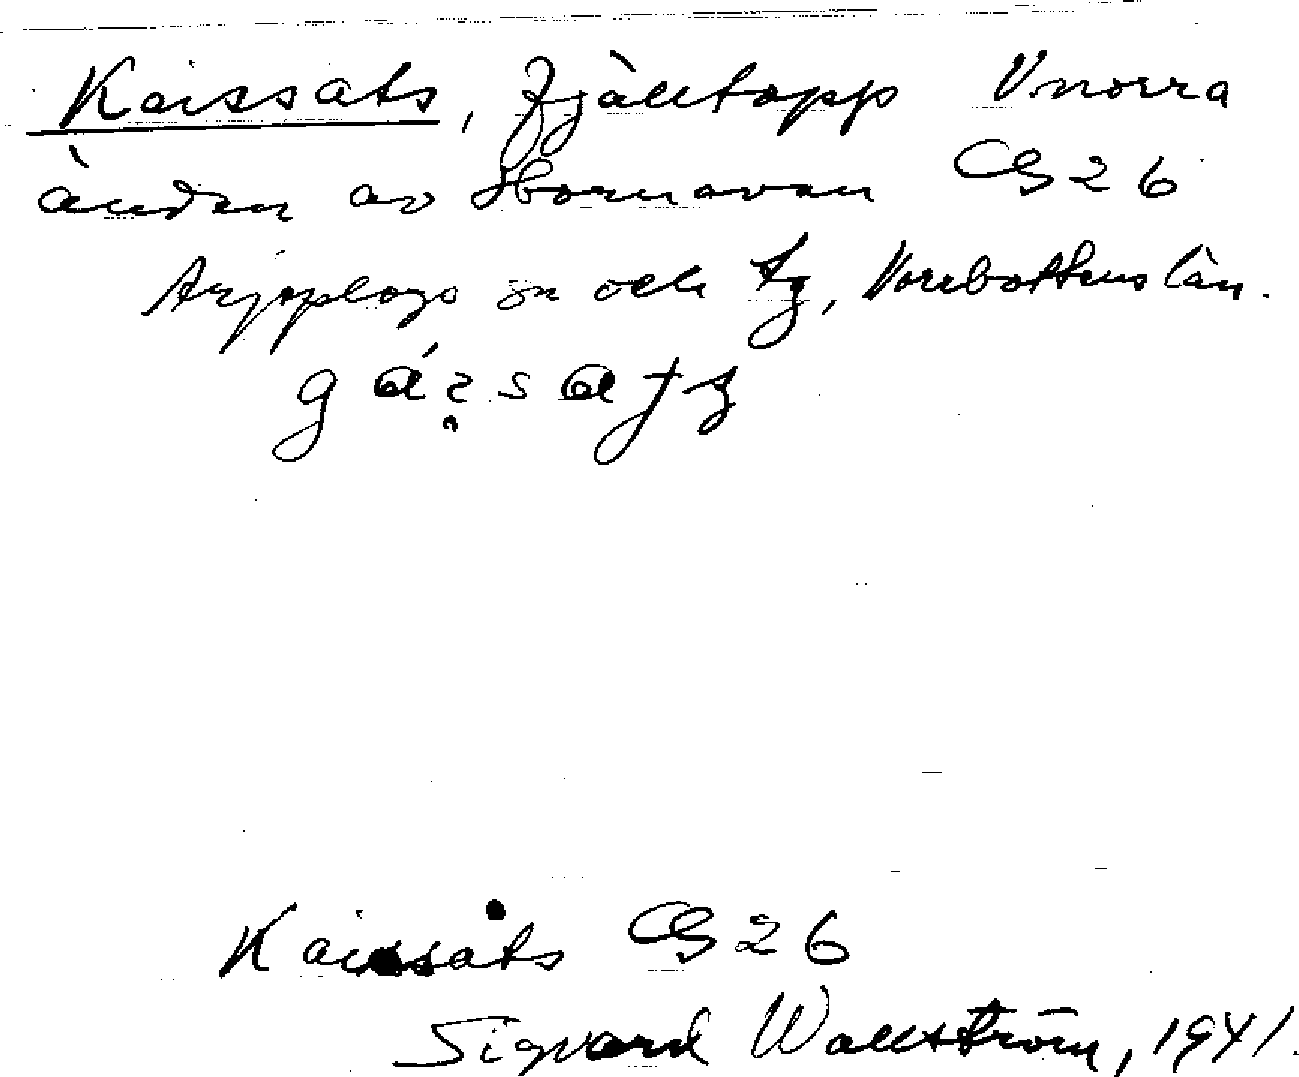 Kaissats, fjälltopp V norra
änden av Hornavan GS 26
Arjeplogs sn och tg, Norrbottens län.
Kaissats GS 26
Sigvard Wallström, 1941.